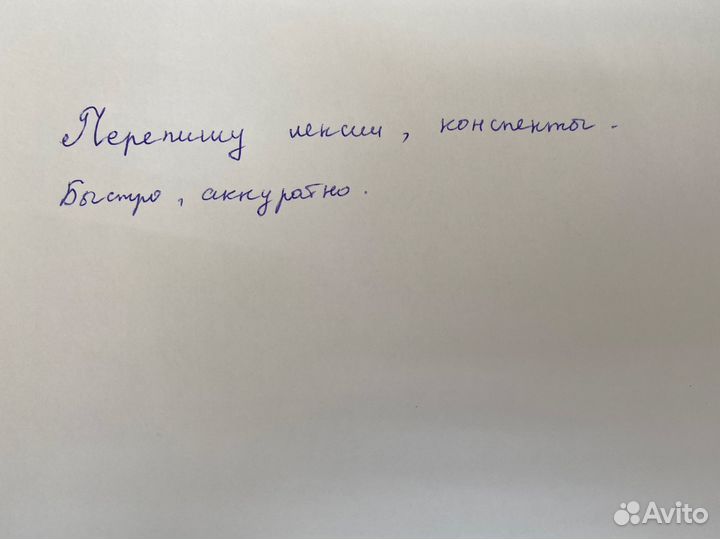 Перепишу лекции, конспекты.
Быстро, аккуратно.
Avito